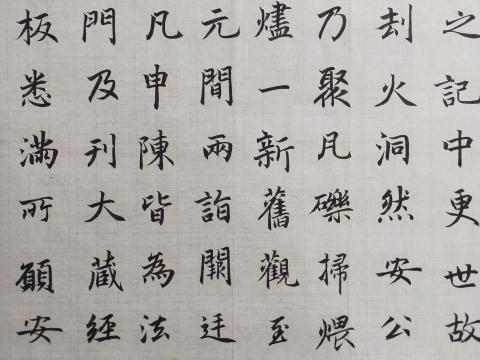 之記中更世故
刦火洞然安公
乃聚瓦礫掃煨
燼一新舊觀至
元間兩詣闕廷
凡申陳皆為法
門及刊大藏經
板悉滿所願安